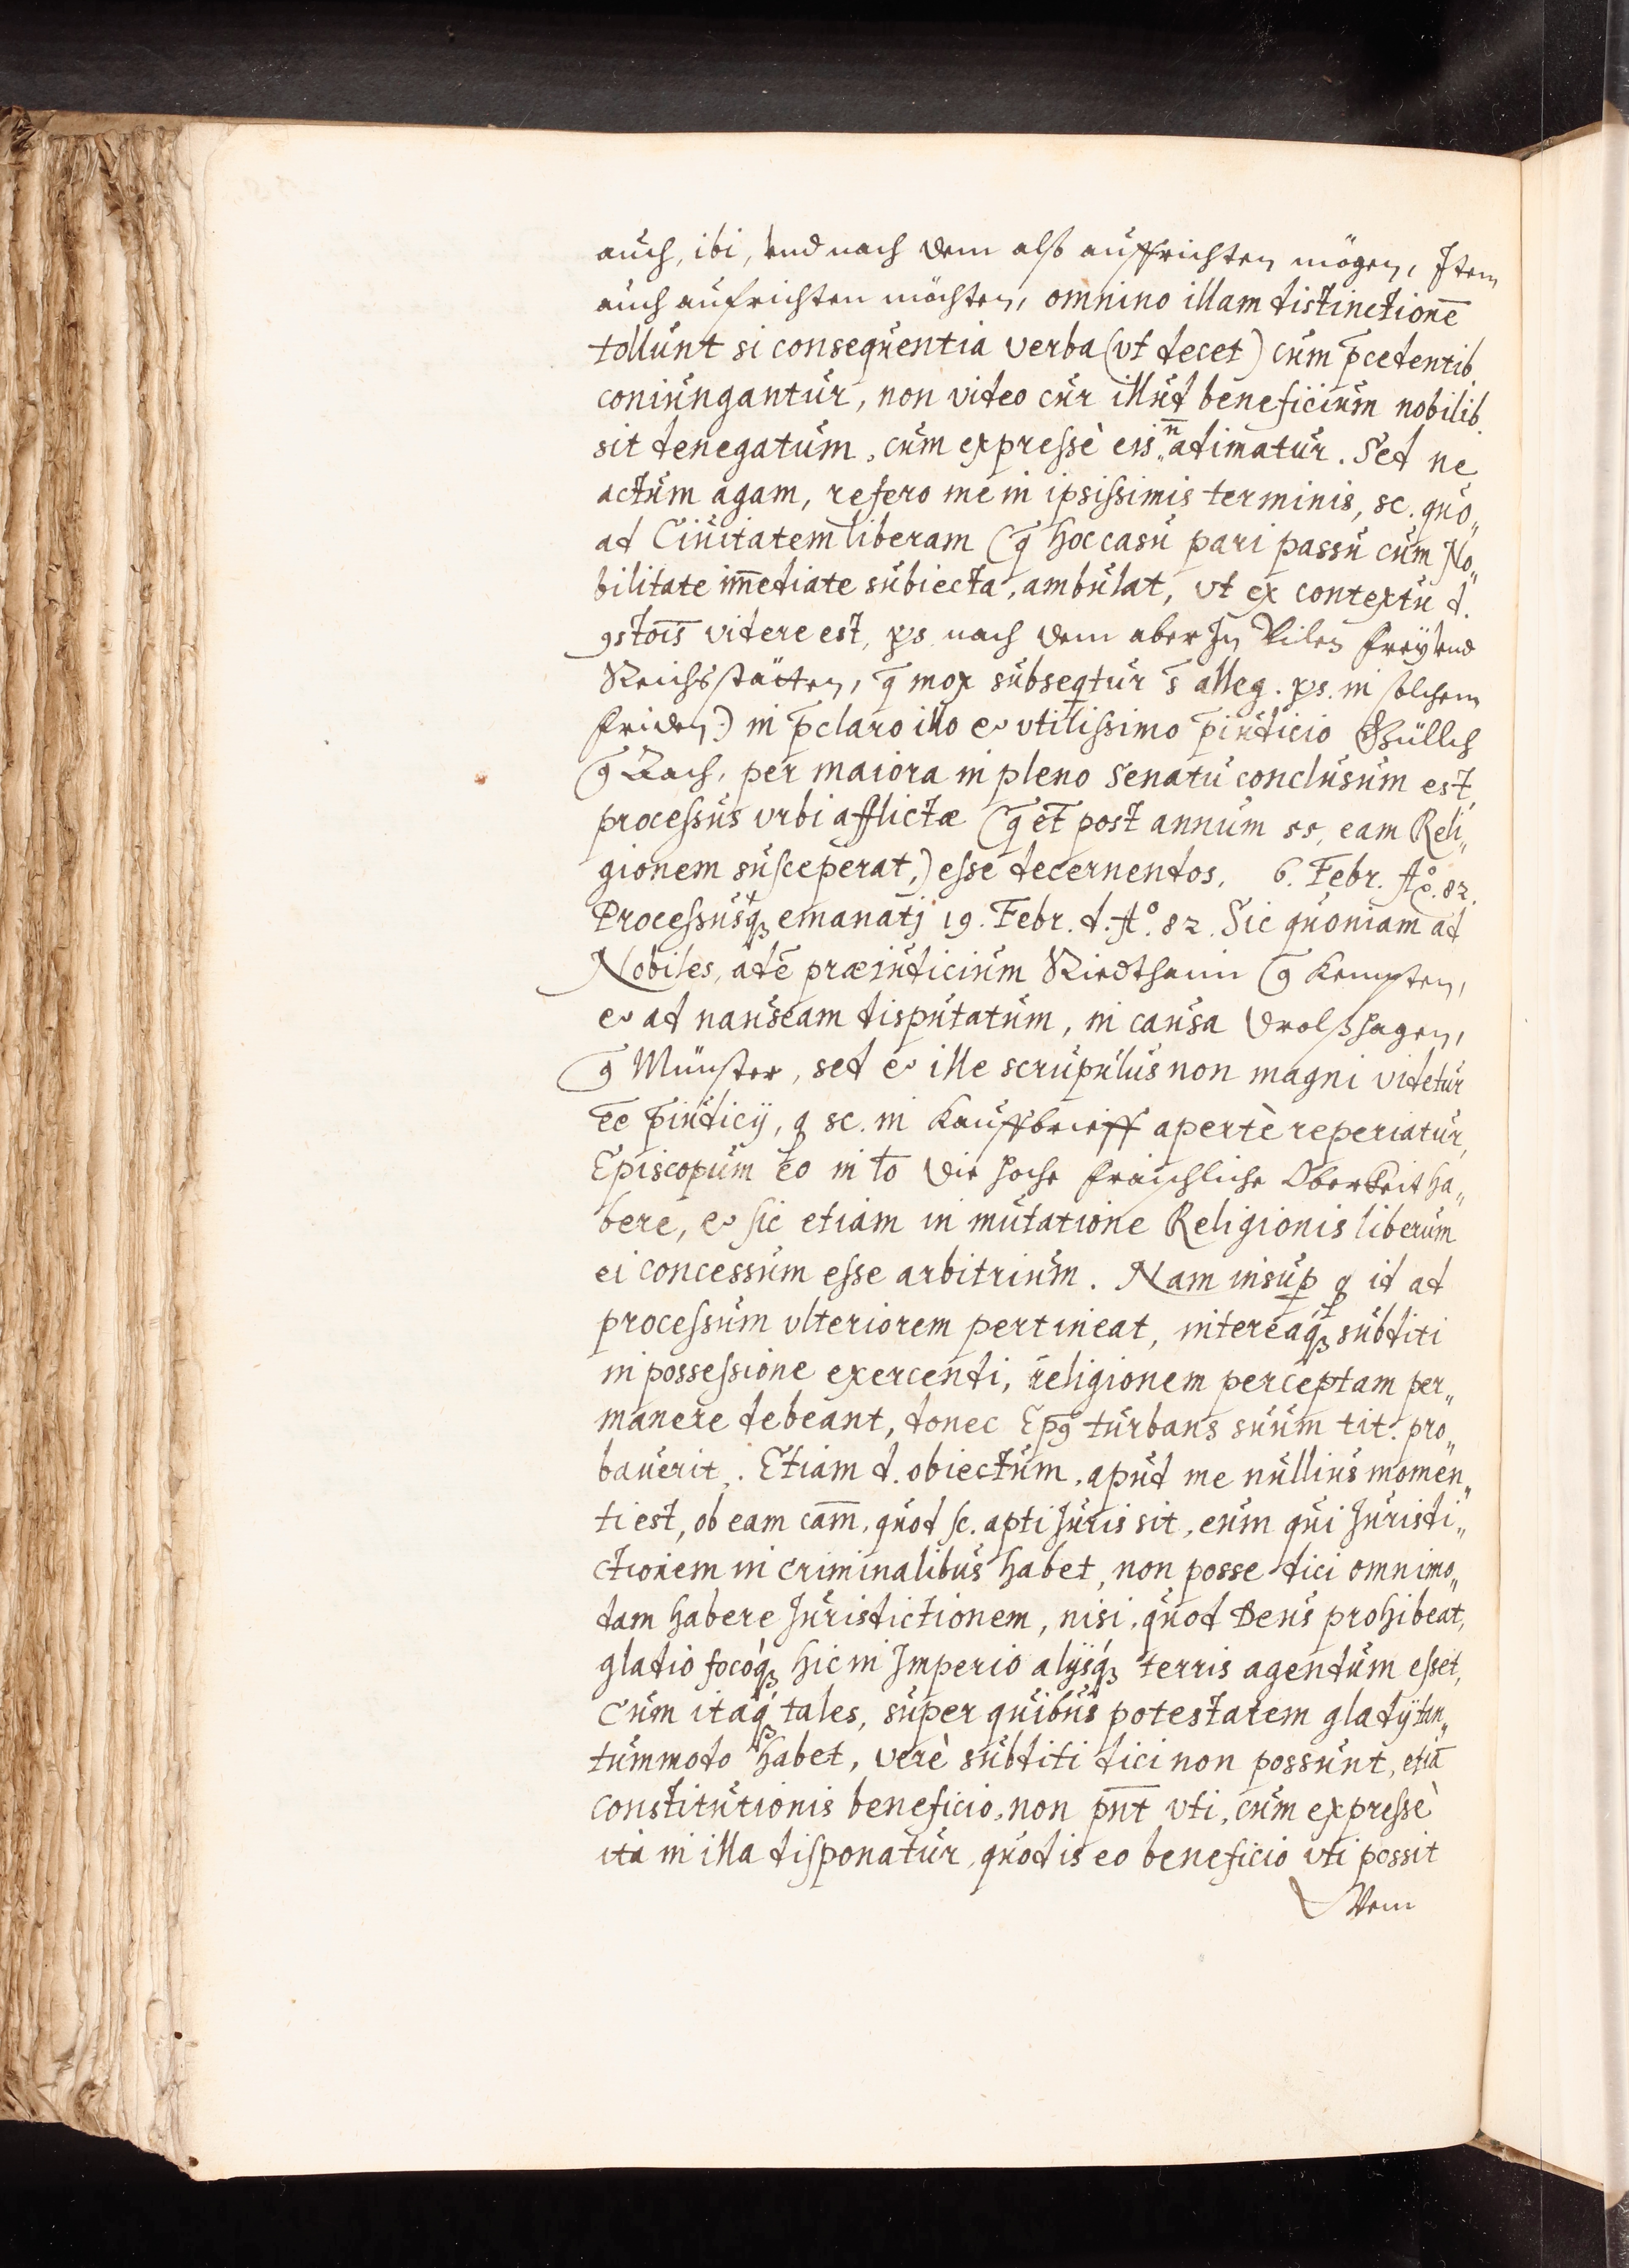 auch, ibi, vnd nach dem alß auffrichten mögen, Item
auch aufrichten möchten, omnino illam distinctionē
tollunt si consequentia verba (vt decet) cum p̄cedentib.
coniungantur, non video cur illud beneficium nobilib.
sit denegatum, cum expressè eis n̄ adimatur. Sed ne
actum agam, refero me in ipsissimis terminis, sc. quo„
ad Ciuitatem liberam (q̄ hoc casu pari passu cum No„
bilitate im̄ediate subiecta, ambulat, vt ex contextu d.
9stōis videre est, ps. nach dem aber In vilen Freÿ vnd
Reichsstätten, q̄ mox subseqtur s̄ alleg. ps. in solchem
friden) in p̄claro illo & vtilissimo p̄iudicio Gülich
9 Aach, per maiora in pleno Senatu conclusum est,
processus vrbi afflictæ (q̄ et̄ post annum 55, eam Reli„
gionem susceperat,) esse decernendos. 6. Febr. Aō. 82.
Processusq; emanatj 19. Febr. d. Aō. 82. Sic quoniam ad
Nobiles, adē præiudicium Riedthaim 9 Kempten,
& ad nauseam disputatum, in causa Drolßhagen,
9 Münster, sed & ille scrupulus non magni videtur
ēe p̄iudicij, q sc. in Kauffbrieff apertè reperiatur,
Episcopum eo in to die hohe fraischliche Oberkeit ha„
bere, & sic etiam in mutatione Religionis liberum
ei concessum esse arbitrium. Nam insup q id ad
processum vlteriorem pertineat, intereàq; subditi
in possessione exercendi, religionem perceptam per„
manere debeant, donec Ep̄9 turbans suum tit. pro„
bauerit. Etiam d. obiectum, apud me nullius momen„
ti est, ob eam cam̄, quod sc. apti Juris sit, eum qui Jurisdi„
ctionem in criminalibus habet, non posse dici omnimo„
dam habere Jurisdictionem, nisi, quod Deus prohibeat,
gladio focoq; hic in Imperio alijsq; terris agendum esset,
Cum itaq; tales, super quibus potestatem gladij tan„
tummodo habet, verè subditi dici non possunt, etiā
constitutionis beneficio, non pn̄t vti, cum expressè
ita in illa disponatur, quod is eo beneficio vti possit
Dem